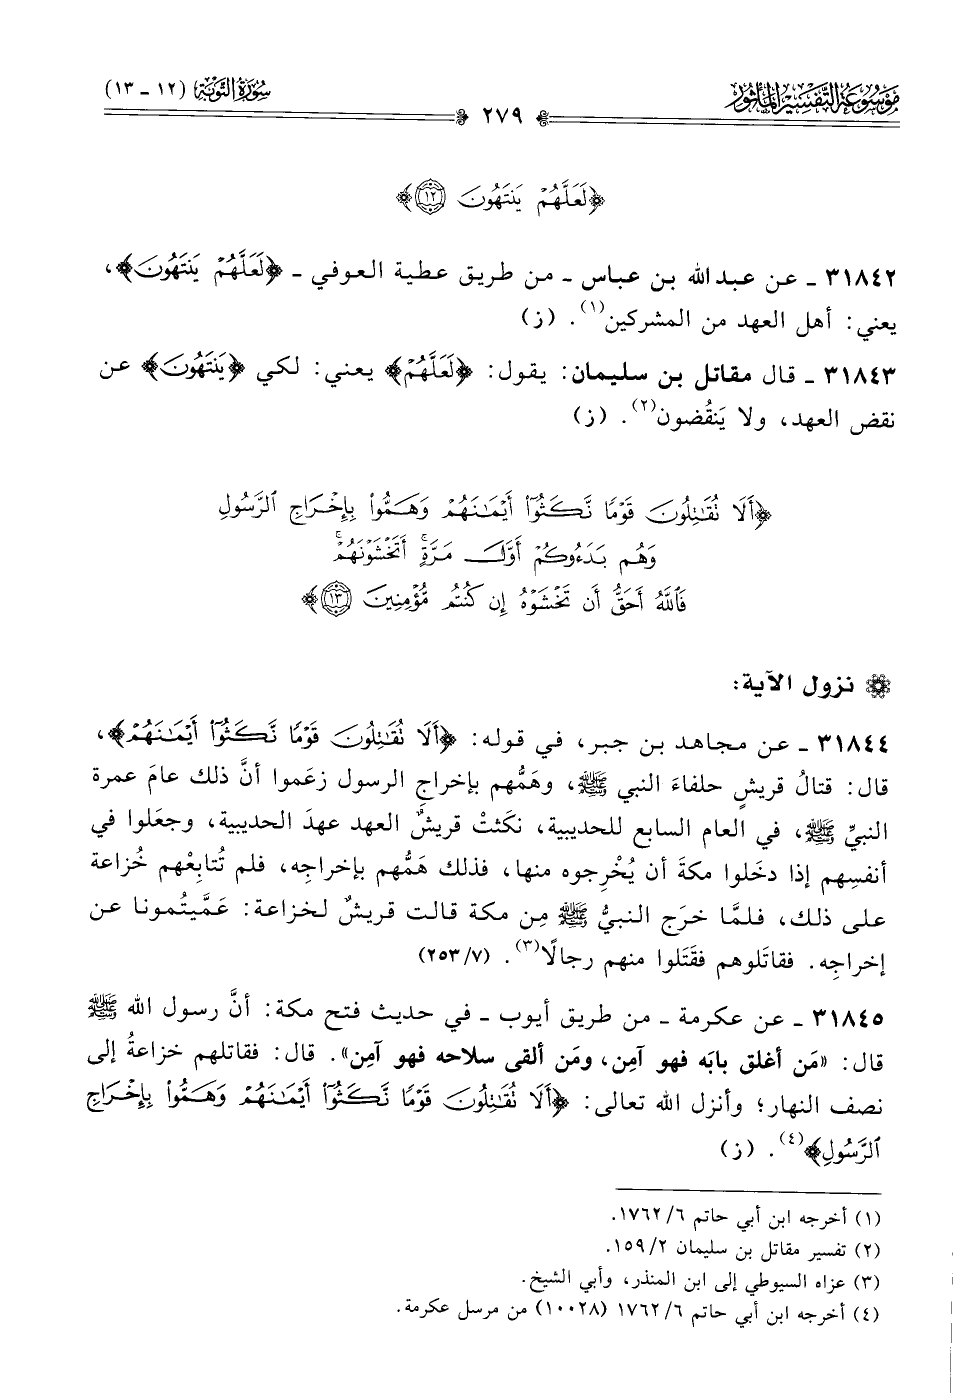 موسوعة التفسير المأثور
سورة التوبة (١٢ - ١٣)
٢٧٩
﴿لَعَلَّهُمْ يَنتَهُونَ ١٢﴾
٣١٨٤٢ ـ عن عبد الله بن عباس ـ من طريق عطية العوفي ـ ﴿لَعَلَّهُمْ يَنتَهُونَ﴾،
يعني: أهل العهد من المشركين(١). (ز)
٣١٨٤٣ ـ قال مقاتل بن سليمان: يقول: ﴿لَعَلَّهُمْ﴾ يعني: لكي ﴿يَنتَهُونَ﴾ عن
نقض العهد، ولا يَنقُضون(٢). (ز)
﴿أَلَا نُقَٰتِلُونَ قَوْمًا نَّكَثُوٓا۟ أَيْمَٰنَهُمْ وَهَمُّوا۟ بِإِخْرَاجِ ٱلرَّسُولِ
وَهُم بَدَءُوكُمْ أَوَّلَ مَرَّةٍ ۚ أَتَخْشَوْنَهُمْ ۚ
فَٱللَّهُ أَحَقُّ أَن تَخْشَوْهُ إِن كُنتُم مُّؤْمِنِينَ ١٣﴾
نزول الآية:
٣١٨٤٤ ـ عن مجاهد بن جبر، في قوله: ﴿أَلَا نُقَٰتِلُونَ قَوْمًا نَّكَثُوٓا۟ أَيْمَٰنَهُمْ﴾،
قال: قتالُ قريشٍ حلفاءَ النبي ﷺ، وهَمُّهم بإخراجِ الرسول زعَموا أنَّ ذلك عامَ عمرة
النبيِّ ﷺ، في العام السابع للحديبية، نكثتْ قريشٌ العهد عهدَ الحديبية، وجعَلوا في
أنفسِهم إذا دخَلوا مكةَ أن يُخْرِجوه منها، فذلك هَمُّهم بإخراجِه، فلم تُتابِعْهم خُزاعة
على ذلك، فلمَّا خرَج النبيُّ ﷺ مِن مكة قالت قريشٌ لخزاعة: عَمَّيتُمونا عن
إخراجِه. فقاتَلوهم فقَتَلوا منهم رجالًا(٣). (٢٥٣/٧)
٣١٨٤٥ ـ عن عكرمة ـ من طريق أيوب ـ في حديث فتح مكة: أنَّ رسول الله ﷺ
قال: «مَن أغلق بابَه فهو آمِن، ومَن ألقى سلاحه فهو آمِن». قال: فقاتلهم خزاعةُ إلى
نصف النهار؛ وأنزل الله تعالى: ﴿أَلَا نُقَٰتِلُونَ قَوْمًا نَّكَثُوٓا۟ أَيْمَٰنَهُمْ وَهَمُّوا۟ بِإِخْرَاجِ
ٱلرَّسُولِ﴾(٤). (ز)
(١) أخرجه ابن أبي حاتم ٦/ ١٧٦٢.
(٢) تفسير مقاتل بن سليمان ٢/ ١٥٩.
(٣) عزاه السيوطي إلى ابن المنذر، وأبي الشيخ.
(٤) أخرجه ابن أبي حاتم ٦/ ١٧٦٢ (١٠٠٢٨) من مرسل عكرمة.